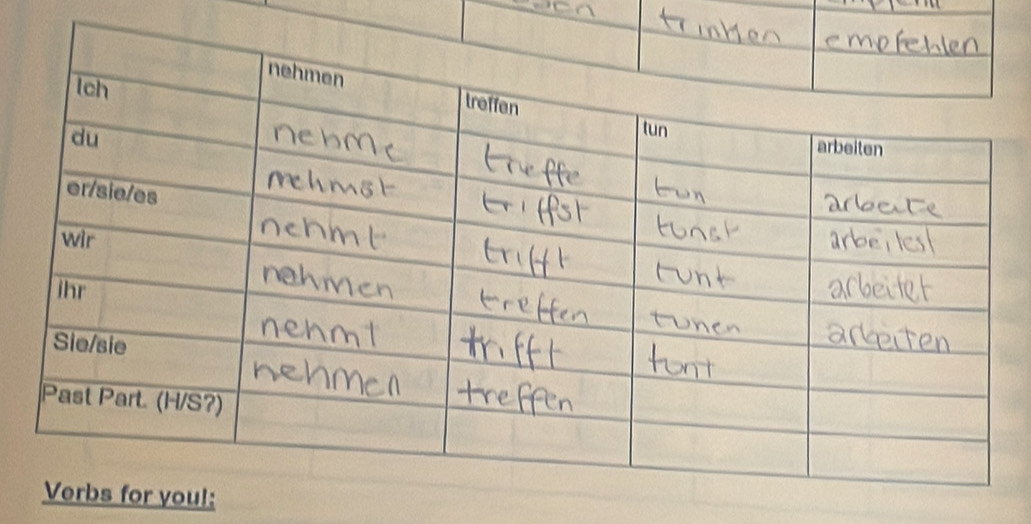 trinken empfehlen
nehmen treffen tun arbeiten
Ich nehme treffe tun arbeite
du mehmst triffst tunst arbeitest
er/sie/es nehmt trifft tunt arbeitet
wir nehmen treffen tunen arbeiten
ihr nehmt trifft tont
Sie/sie nehmen treffen
Past Part. (H/S?)
Verbs for you!: